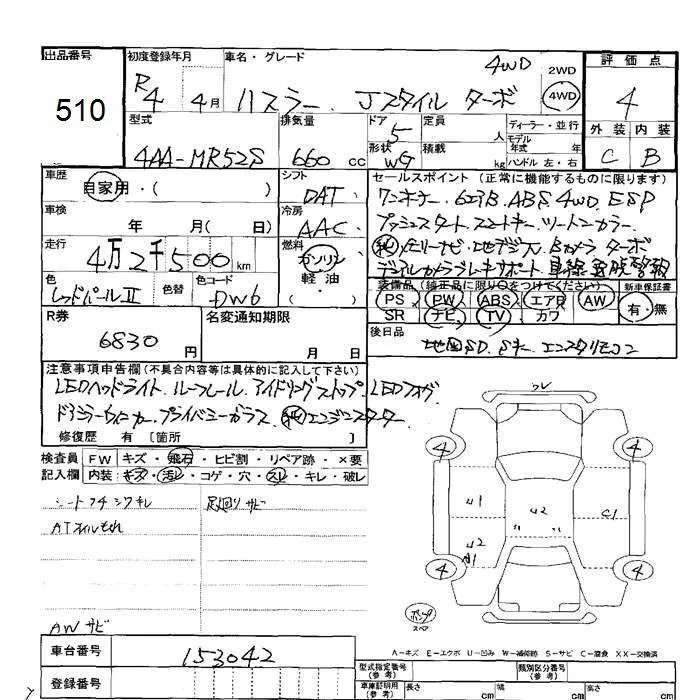 出品番号 510
初度登録年月 R4 4月
車名・グレード ハスラー Jスタイル ターボ 4WD 2WD 4WD
評価点 4
外装 内装
C B
型式 4AA-MR52S
排気量 660 cc
ドア 5
形状 WG
定員 人
積載 kg
ディーラー・並行
モデル年式 年式
ハンドル 左・右
車歴 自家用・( )
シフト DAT
車検 年 月( 日)
冷房 AAC
走行 4万2千500km
燃料 ガソリン 軽油 ( )
色 レッドパールⅡ
色替
色コード DW6
セールスポイント(正常に機能するものに限ります)
ワンオーナー. ABS 4WD. ESP
プッシュスタート スマートキー. ツートンカラー.
ナビ. 地デジ Bカメラ ターボ
デュアルカメラブレーキサポート 車線逸脱警報
装備品(純正品に限り○をつけてください)
PS PW ABS エアB AW
SR ナビ TV カワ
新車保証書 有・無
R券 6830円
名変通知期限 月 日
後日品
地図SD. Sキー. エンスタリモコン
注意事項申告欄(不具合内容等は具体的に記入して下さい)
LEDヘッドライト. ルーフレール. アイドリングストップ. LEDフォグ
ドアミラーウィンカー. プライバシーガラス. エンジンスターター.
修復歴 有 〔箇所 〕
検査員記入欄
FW キズ・飛石・ヒビ割・リペア跡・×要
内装 キズ・汚レ・コゲ・穴・スレ・キレ・破レ
シート
足廻り サビ
ATオイルもれ
AW サビ
4 4
U1 U2 C1
U2
A1
4 4
パンク
スペア
A-キズ E-エクボ U-凹み W-補修跡 S-サビ C-腐食 XX-交換済
車台番号 153042
登録番号
型式指定番号(参考)
類別区分番号(参考)
車庫証明用(参考) 長さ cm 幅 cm 高さ cm